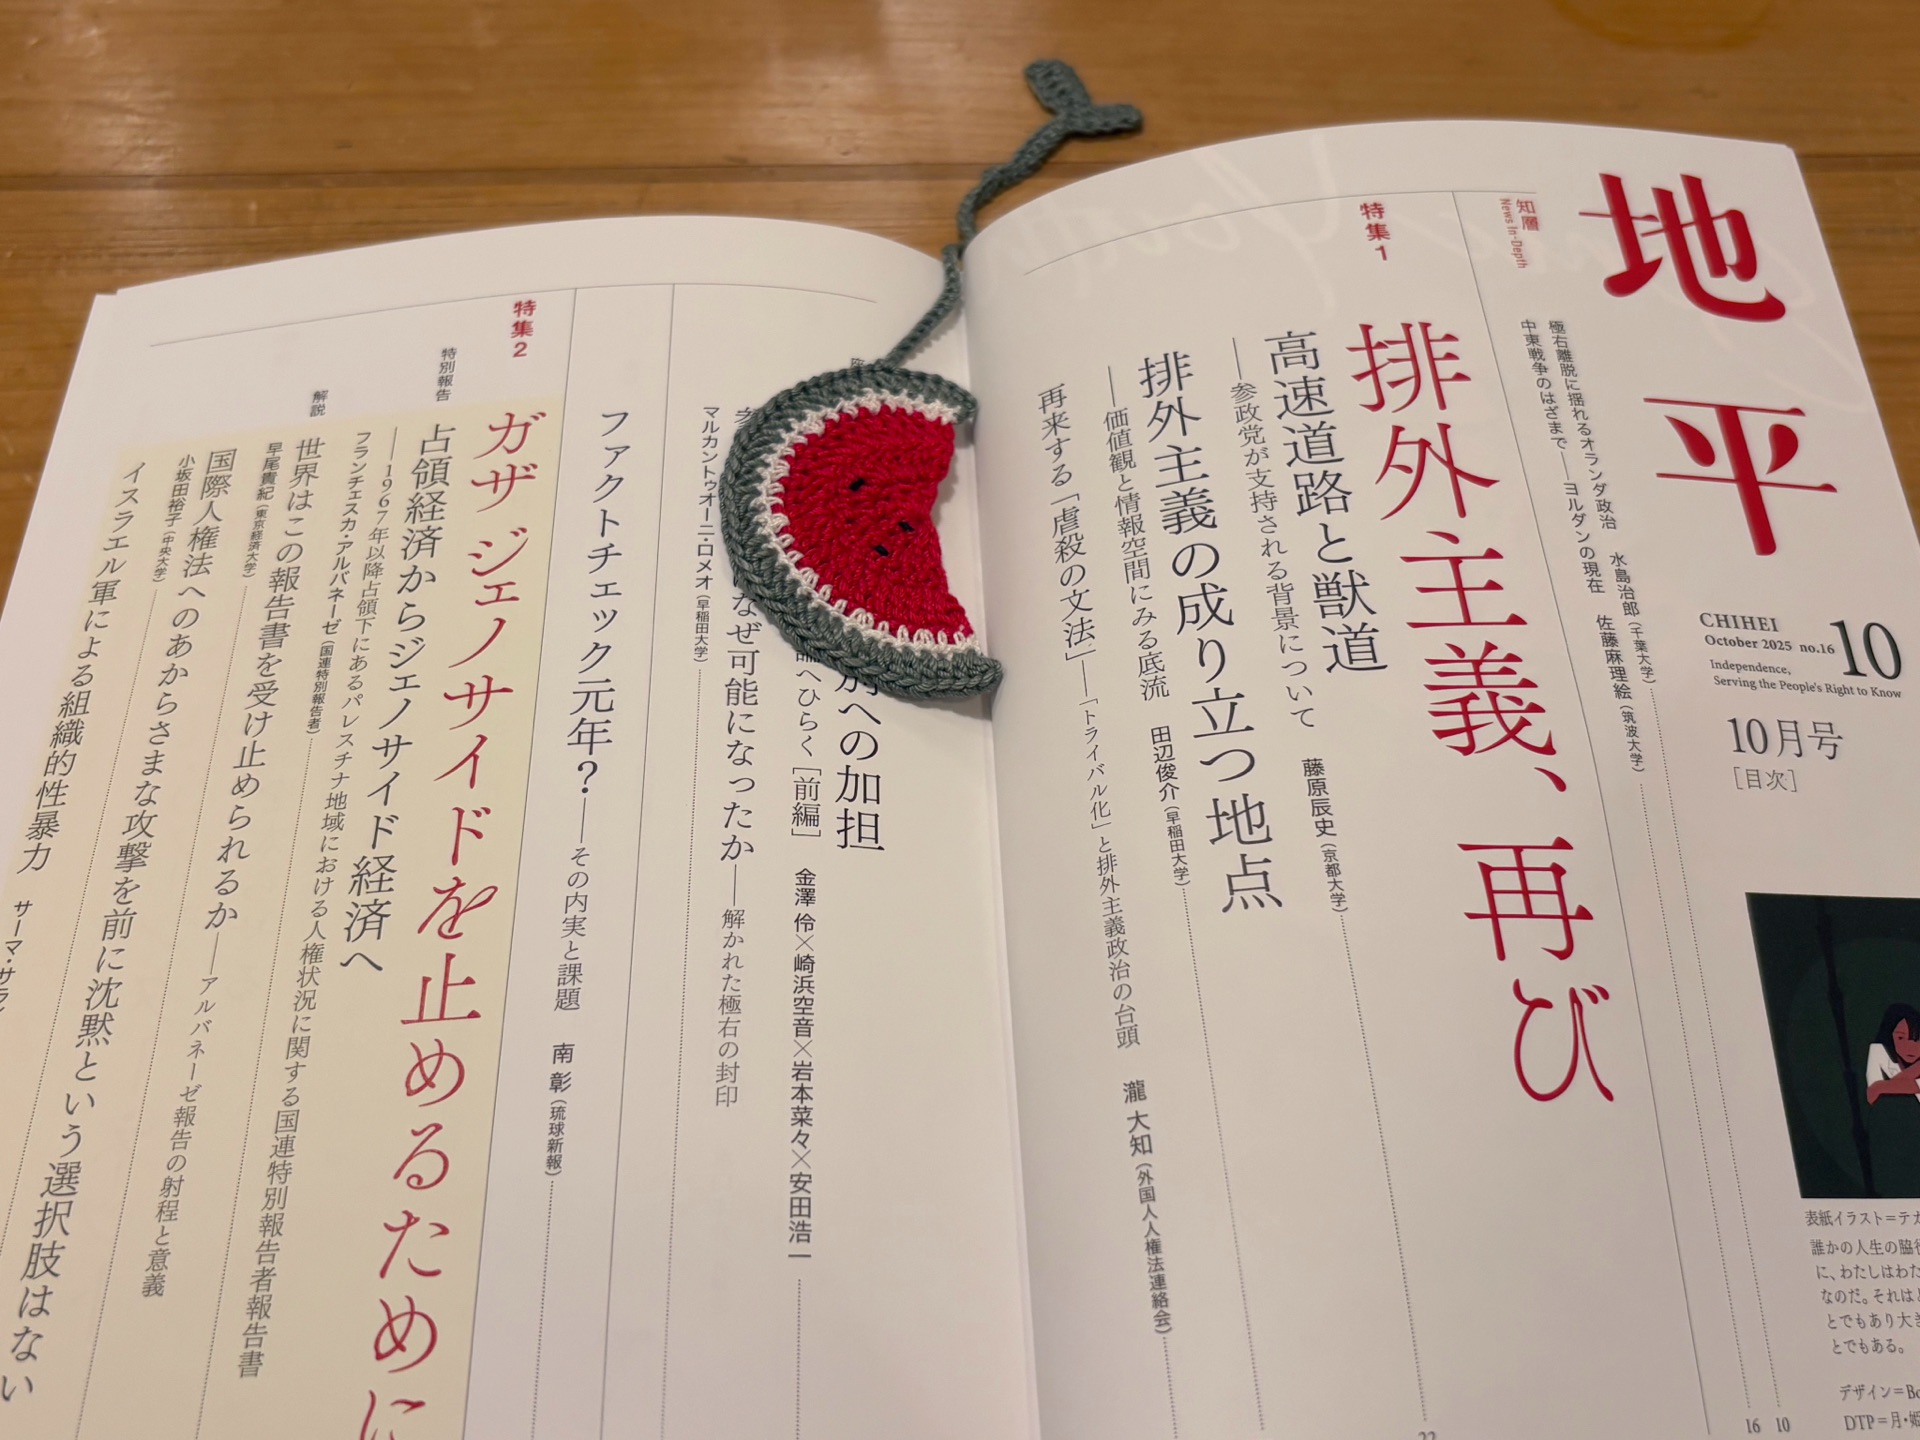 地平
CHIHEI
October 2025 no.16
10
Independence,
Serving the People's Right to Know
10月号
［目次］
表紙イラスト＝テカ
誰かの人生の脇役
に、わたしはわた
なのだ。それはと
とでもあり大き
とでもある。
デザイン＝Bo
DTP＝月・姫
知層
News In-Depth
極右離脱に揺れるオランダ政治 水島治郎（千葉大学） 10
中東戦争のはざまで――ヨルダンの現在 佐藤麻理絵（筑波大学） 16
特集1
排外主義、再び
高速道路と獣道
――参政党が支持される背景について 藤原辰史（京都大学） 22
排外主義の成り立つ地点
――価値観と情報空間にみる底流 田辺俊介（早稲田大学）
再来する「虐殺の文法」――「トライバル化」と排外主義政治の台頭 瀧 大知（外国人人権法連絡会）
への加担
へひらく［前編］ 金澤 伶×崎浜空音×岩本菜々×安田浩一
なぜ可能になったか――解かれた極右の封印
マルカントゥオーニ・ロメオ（早稲田大学）
ファクトチェック元年？――その内実と課題 南 彰（琉球新報）
特集2
ガザ ジェノサイドを止めるために
特別報告
占領経済からジェノサイド経済へ
――1967年以降占領下にあるパレスチナ地域における人権状況に関する国連特別報告者報告書
フランチェスカ・アルバネーゼ（国連特別報告者）
解説
世界はこの報告書を受け止められるか――アルバネーゼ報告の射程と意義
早尾貴紀（東京経済大学）
国際人権法へのあからさまな攻撃を前に沈黙という選択肢はない
小坂田裕子（中央大学）
イスラエル軍による組織的性暴力 サーマ・サラ